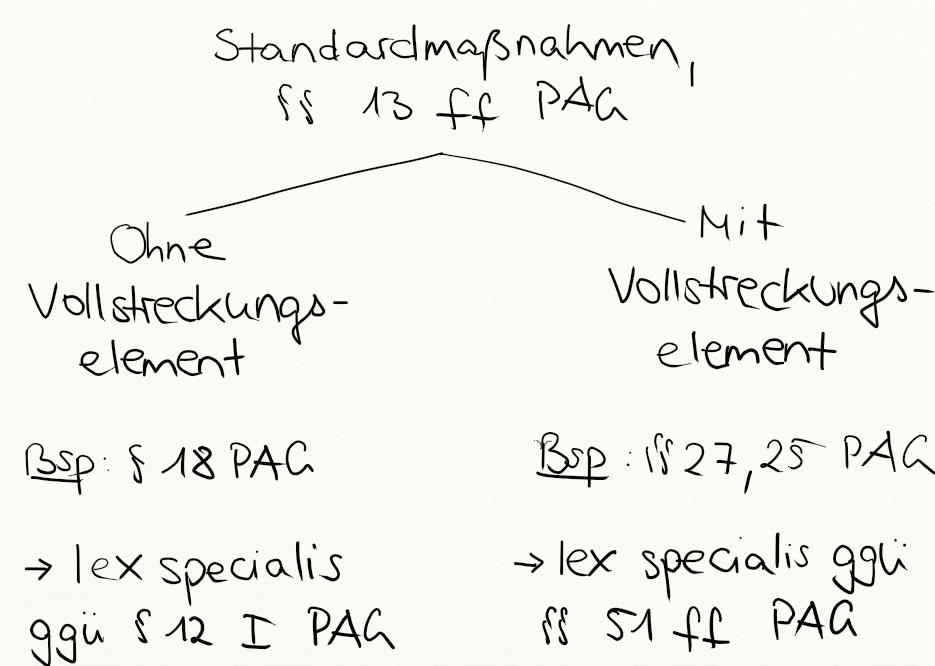 Standardmaßnahmen,
§§ 13 ff PAG
Ohne
Vollstreckungs-
element
Bsp: § 18 PAG
→ lex specialis
ggü § 12 I PAG
Mit
Vollstreckungs-
element
Bsp: §§ 27, 25 PAG
→ lex specialis ggü
§§ 51 ff PAG